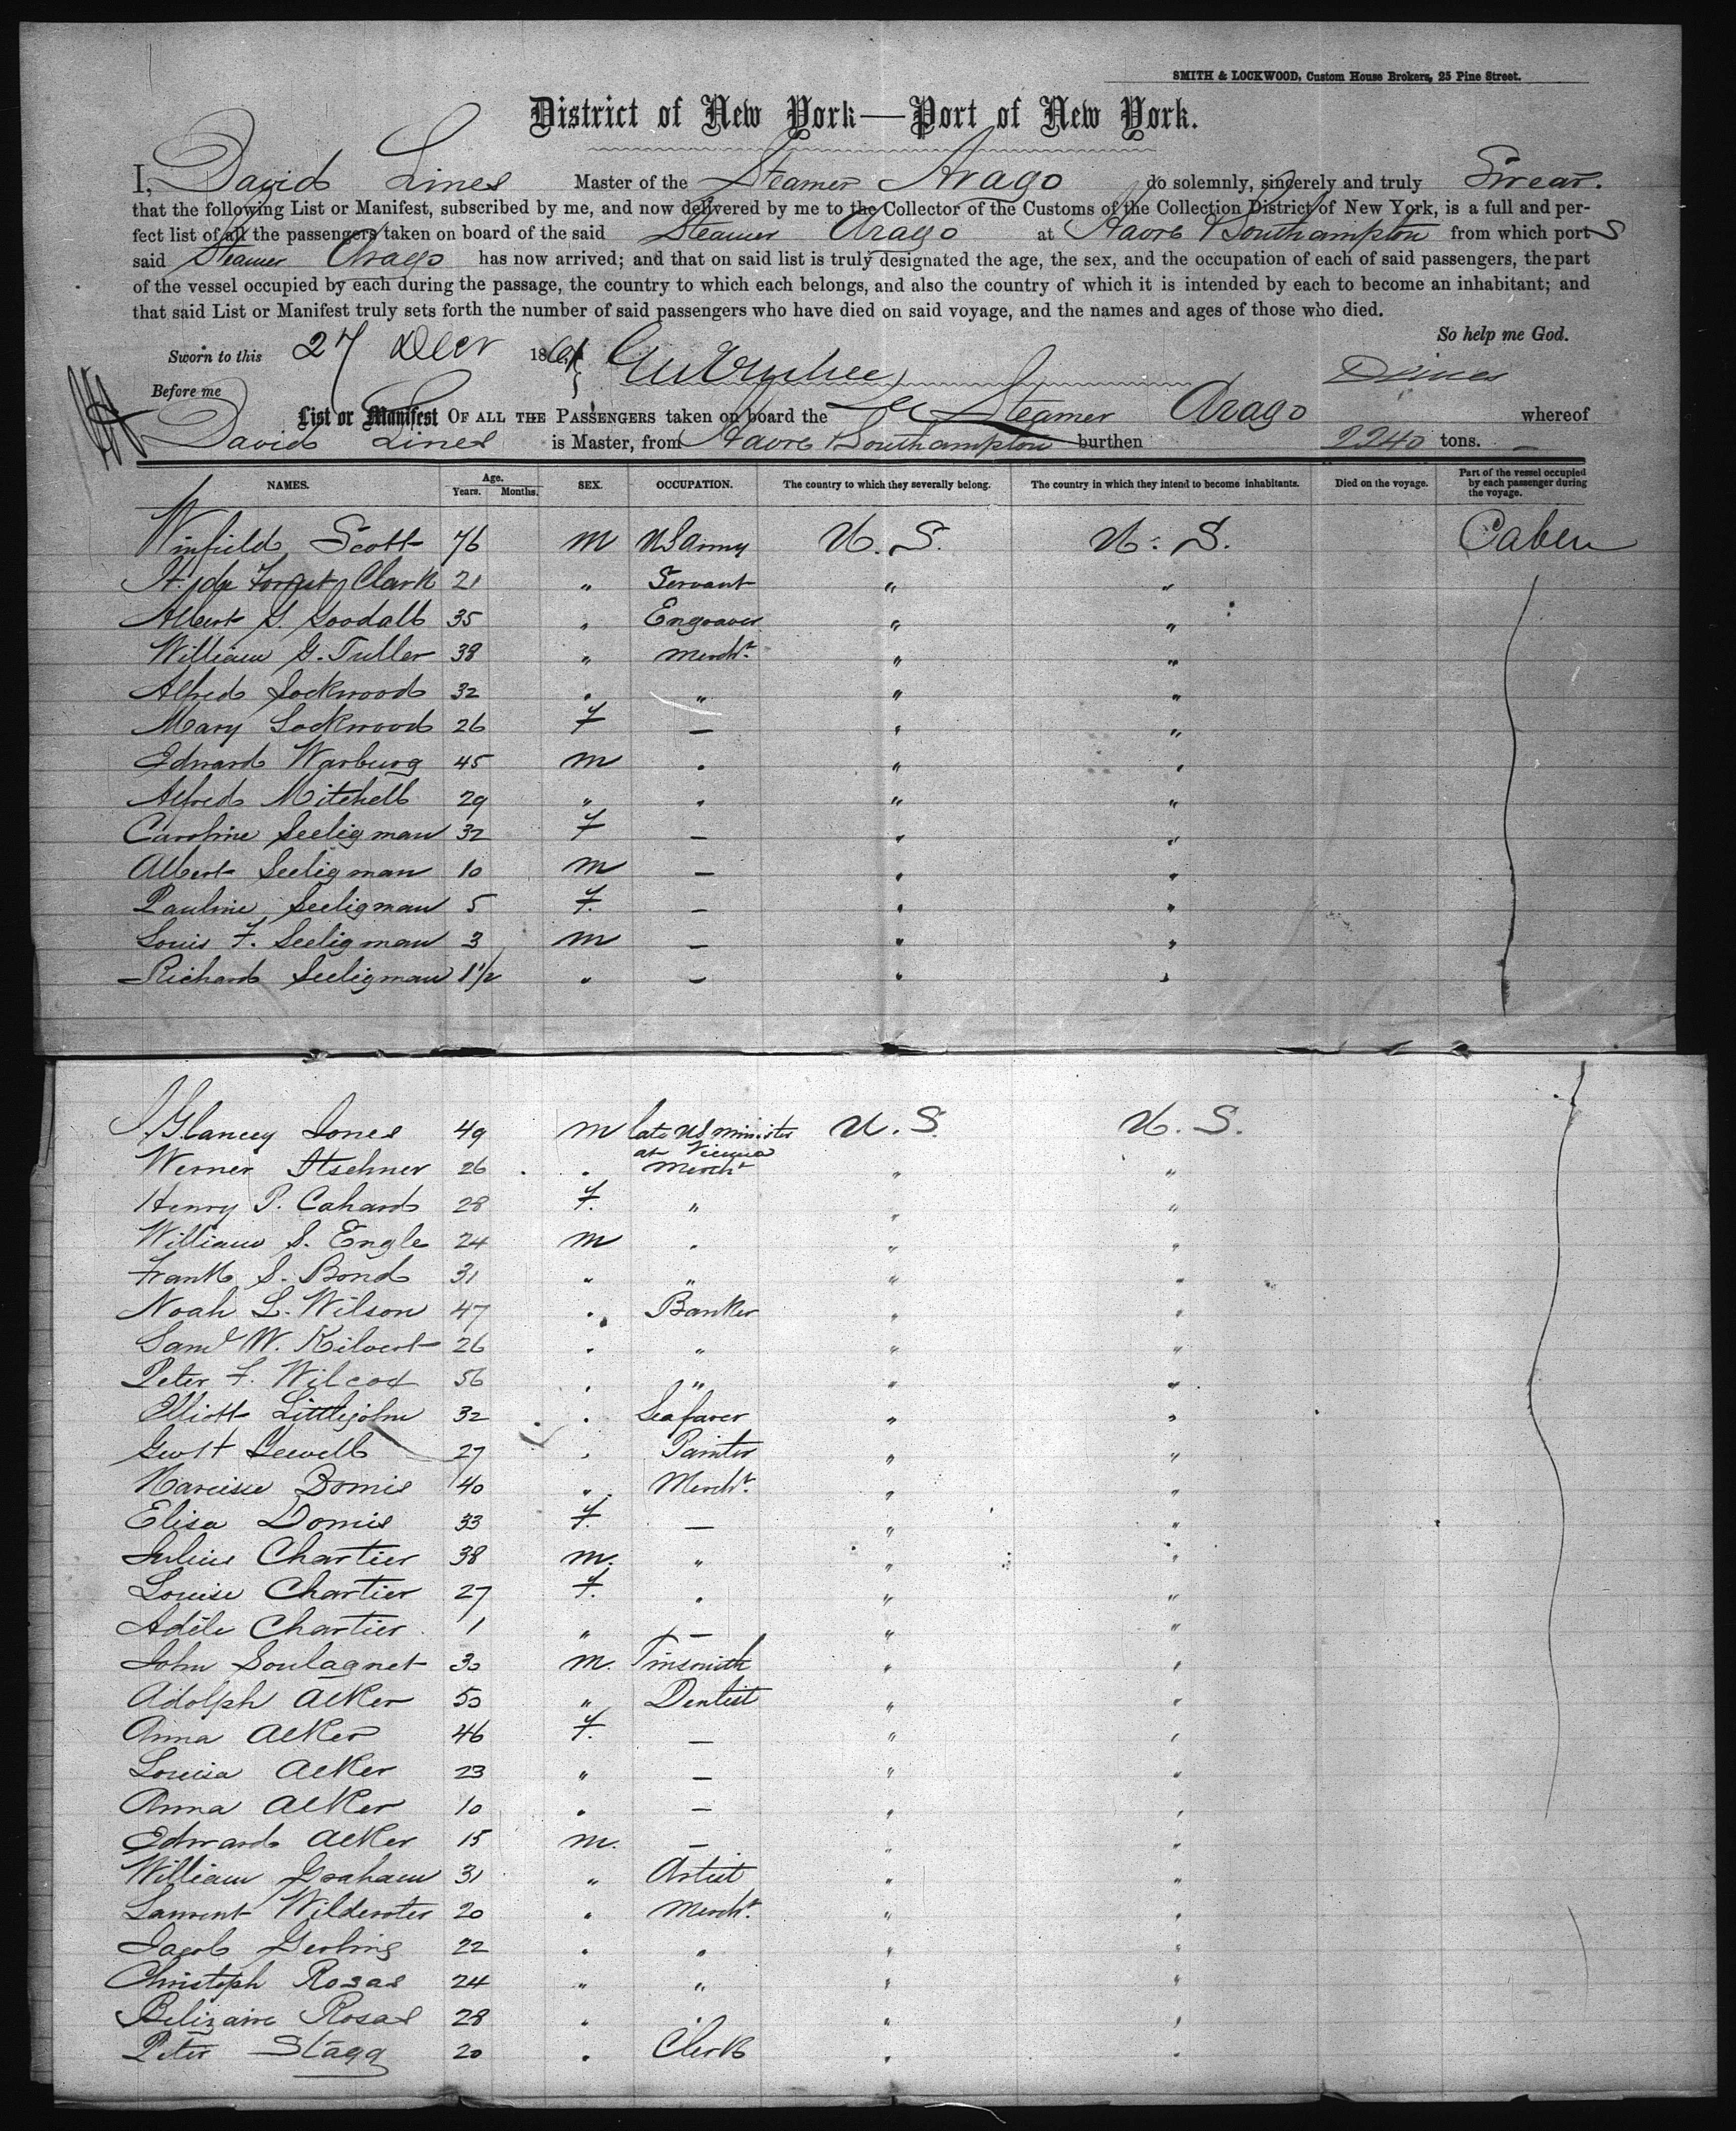 SMITH & LOCKWOOD, Custom House Brokers, 25 Pine Street.
District of New York—Port of New York.
I, David Lines Master of the Steamer Arago do solemnly, sincerely and truly Swear.
that the following List or Manifest, subscribed by me, and now delivered by me to the Collector of the Customs of the Collection District of New York, is a full and per-
fect list of all the passengers taken on board of the said Steamer Arago at Havre & Southampton from which port s
said Steamer Arago has now arrived; and that on said list is truly designated the age, the sex, and the occupation of each of said passengers, the part
of the vessel occupied by each during the passage, the country to which each belongs, and also the country of which it is intended by each to become an inhabitant; and
that said List or Manifest truly sets forth the number of said passengers who have died on said voyage, and the names and ages of those who died.
So help me God.
Sworn to this 27 Decr 1861
Before me
List or Manifest OF ALL THE PASSENGERS taken on board the Steamer Arago whereof
David Lines is Master, from Havre & Southampton burthen 2240 tons.
NAMES. Age. Years. Months. SEX. OCCUPATION. The country to which they severally belong. The country in which they intend to become inhabitants. Died on the voyage. Part of the vessel occupied by each passenger during the voyage.
Winfield Scott 76 m US Army U.S. U.S. Caben
Clark 21 " Servant " "
Albert G. Goodall 35 " Engraver " "
William G. Fuller 38 " Mercht " "
Alfred Lockwood 32 " " " "
Mary Lockwood 26 F — " "
Edward Warburg 45 m " " "
Alfred Mitchell 29 " " " "
Caroline Seeligman 32 F — " "
Albert Seeligman 10 m — " "
Pauline Seeligman 5 F. — " "
Louis F. Seeligman 3 m — " "
Richard Seeligman 1½ " — " "
J Glancey Jones 49 m late US minister at Vienna U.S. U.S.
Werner Itschner 26 " Mercht " "
Henry P. Cahard 28 F. " " "
William S. Engle 24 m " " "
Frank S. Bond 31 " " " "
Noah L. Wilson 47 " Banker " "
Saml W. Kilvert 26 " " " "
Peter F. Wilcox 56 " " " "
Elliott Littlejohn 32 " Seafarer " "
27 " Painter " "
Narcisse Domis 40 " Mercht. " "
Elisa Domis 33 F. — " "
Julius Chartier 38 m. " " "
Louise Chartier 27 F. " " "
Adéle Chartier 1 " — " "
John Soulagnet 30 m. Tinsmith " "
Adolph Acker 50 " Dentist " "
Anna Acker 46 F. — " "
Louisa Acker 23 " — " "
Anna Acker 10 " — " "
Edward Acker 15 m. — " "
William Graham 31 " Artist " "
Laurent 20 " Mercht. " "
Jacob Gerling 22 " " " "
Christoph Rosas 24 " " " "
Belizaire Rosas 28 " " " "
Peter Stagg 20 " Clerk " "